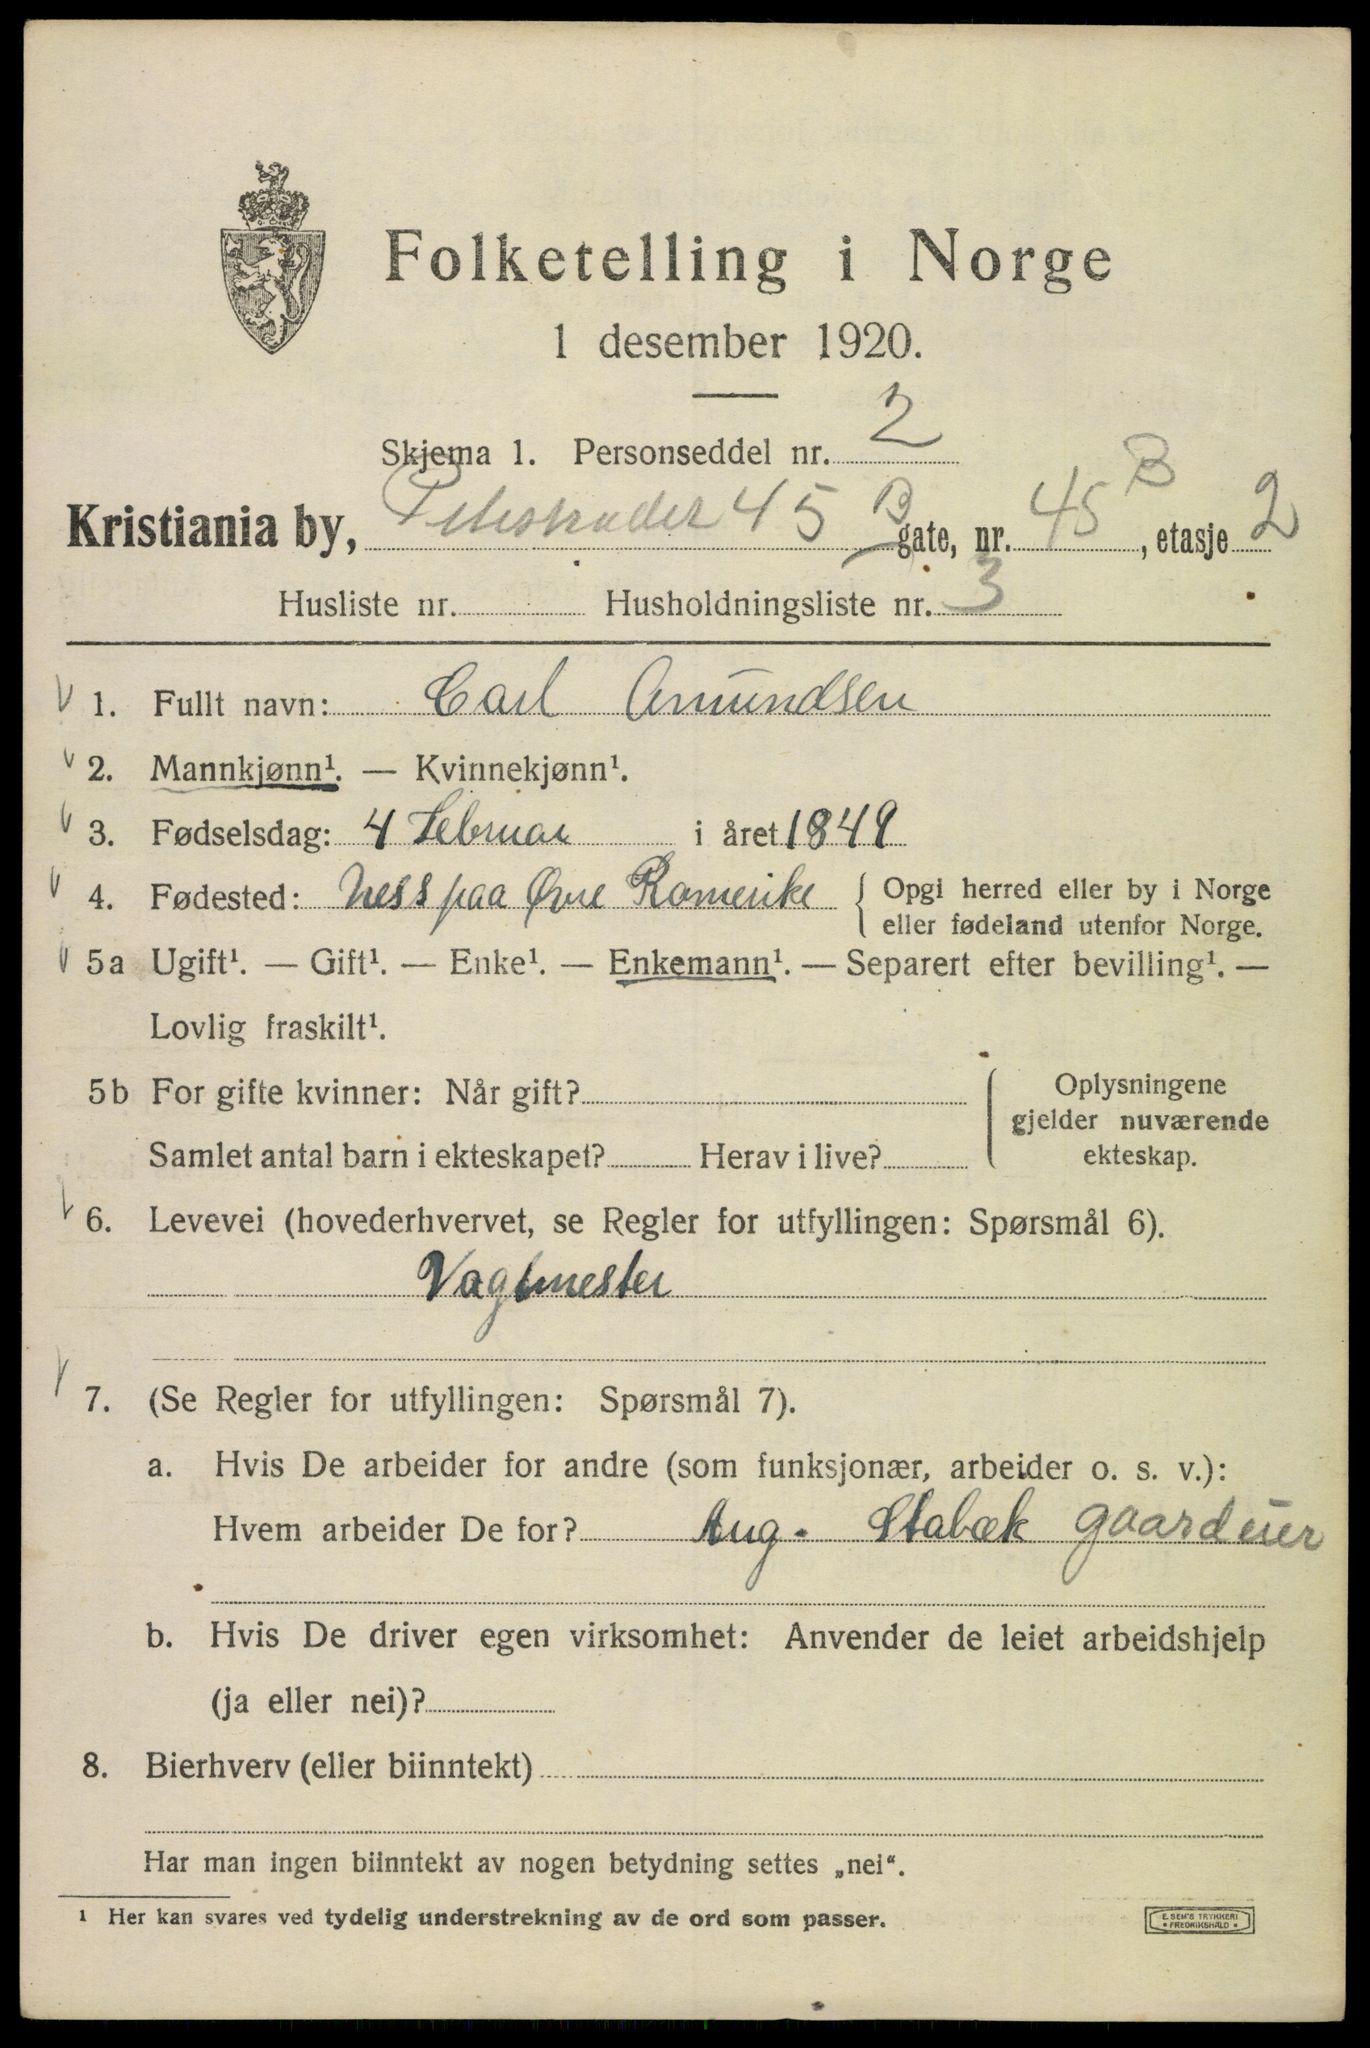 Folketelling i Norge
1 desember 1920.
Skjema 1. Personseddel nr. 2
Kristiania by, Pilestrædet 45 B gate, nr. 45 B, etasje 2
Husliste nr. Husholdningsliste nr. 3
1. Fullt navn: Carl Amundsen
2. Mannkjønn¹. — Kvinnekjønn¹.
3. Fødselsdag: 4 Februar i året 1849
4. Fødested: Ness paa Øvre Romerike { Opgi herred eller by i Norge
eller fødeland utenfor Norge.
5a Ugift¹. — Gift¹. — Enke¹. — Enkemann¹. — Separert efter bevilling¹. —
Lovlig fraskilt¹.
5b For gifte kvinner: Når gift? { Oplysningene
gjelder nuværende
Samlet antal barn i ekteskapet? Herav i live? ekteskap.
6. Levevei (hovederhvervet, se Regler for utfyllingen: Spørsmål 6).
Vagtmester
7. (Se Regler for utfyllingen: Spørsmål 7).
a. Hvis De arbeider for andre (som funksjonær, arbeider o. s. v.):
Hvem arbeider De for? Aug. Stabæk gaardeier
b. Hvis De driver egen virksomhet: Anvender de leiet arbeidshjelp
(ja eller nei)?
8. Bierhverv (eller biinntekt)
Har man ingen biinntekt av nogen betydning settes „nei“.
1 Her kan svares ved tydelig understrekning av de ord som passer.
E. SEM'S TRYKKERI
• FREDRIKSHALD •